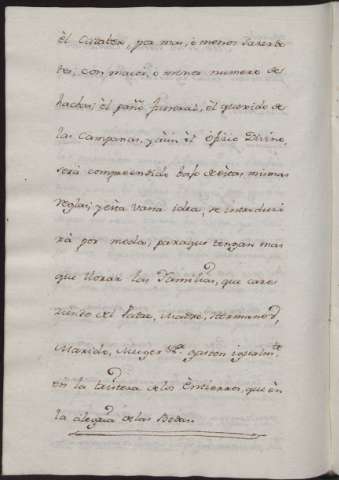 el Cadaver, por mas, o menos Sacerdo
tes, con maior, o menor numero de
hachas; el paño funeral, el querido de
las Campanas, y aun el Ofizio Divino,
será comprendido bajo de estas mismas
reglas; y esta vana idea, se introduci
rá por moda; para que tengan mas
que llorar las Familias, que care
ziendo del Padre, Madre, Hermano,
Marido, Muger &c. gasten igualmte
en la tristeza de los Entierros, que en
la alegria de las Bodas.